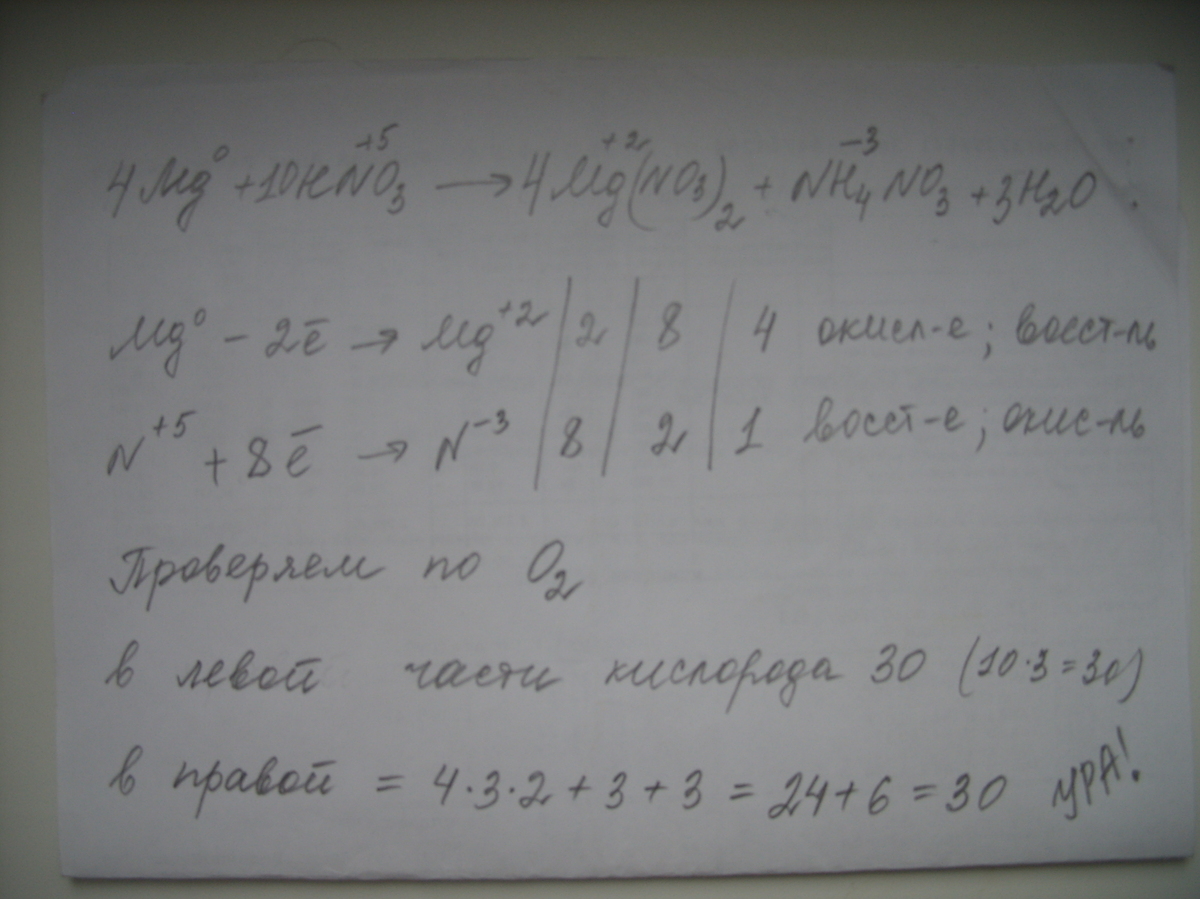 4Mg⁰ + 10HN⁺⁵O₃ → 4Mg⁺²(NO₃)₂ + N⁻³H₄NO₃ + 3H₂O
Mg⁰ - 2ē → Mg⁺² | 2 | 8 | 4 окисл-е; восст-ль
N⁺⁵ + 8ē → N⁻³ | 8 | 2 | 1 восст-е; окис-ль
Проверяем по O₂
в левой части кислорода 30 (10·3=30)
в правой = 4·3·2 + 3 + 3 = 24 + 6 = 30 УРА!